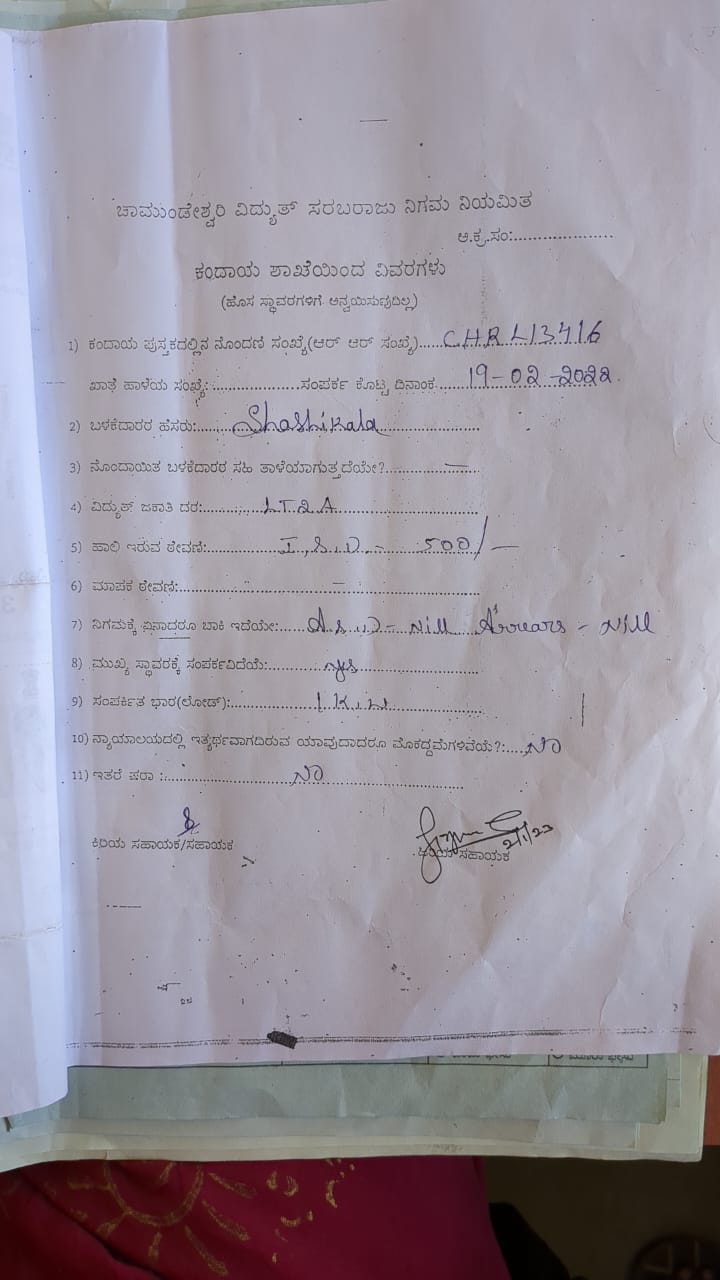 ಚಾಮುಂಡೇಶ್ವರಿ ವಿದ್ಯುತ್ ಸರಬರಾಜು ನಿಗಮ ನಿಯಮಿತ
ಅ.ಕ್ರ.ಸಂ:....................
ಕಂದಾಯ ಶಾಖೆಯಿಂದ ವಿವರಗಳು
(ಹೊಸ ಸ್ಥಾವರಗಳಿಗೆ ಅನ್ವಯಿಸುವುದಿಲ್ಲ)
1) ಕಂದಾಯ ಪುಸ್ತಕದಲ್ಲಿನ ನೊಂದಣಿ ಸಂಖ್ಯೆ(ಆರ್ ಆರ್ ಸಂಖ್ಯೆ).....CHRL13416
ಖಾತೆ ಹಾಳೆಯ ಸಂಖ್ಯೆ:...................ಸಂಪರ್ಕ ಕೊಟ್ಟ ದಿನಾಂಕ......19-02-2022.
2) ಬಳಕೆದಾರರ ಹೆಸರು:.......Shashikala......................
3) ನೊಂದಾಯಿತ ಬಳಕೆದಾರರ ಸಹಿ ತಾಳೆಯಾಗುತ್ತದೆಯೇ?............—...
4) ವಿದ್ಯುತ್ ಜಕಾತಿ ದರ:............LT2A...............................
5) ಹಾಲಿ ಇರುವ ಠೇವಣಿ:................I.S.D.-......500/-
6) ಮಾಪಕ ಠೇವಣಿ:..................................–...............................
7) ನಿಗಮಕ್ಕೆ ಏನಾದರೂ ಬಾಕಿ ಇದೆಯೇ:......A.S.D-Nill Arrears - Nill
8) ಮುಖ್ಯ ಸ್ಥಾವರಕ್ಕೆ ಸಂಪರ್ಕವಿದೆಯೆ:............yes...........................
9) ಸಂಪರ್ಕಿತ ಭಾರ(ಲೋಡ್):...................1 K.W....................
10) ನ್ಯಾಯಾಲಯದಲ್ಲಿ ಇತ್ಯರ್ಥವಾಗದಿರುವ ಯಾವುದಾದರೂ ಮೊಕದ್ದಮೆಗಳಿವೆಯೆ?:....ನಾ
11) ಇತರೆ ಷರಾ :...........................ನಾ..............................
2/1/23
ಕಿರಿಯ ಸಹಾಯಕ/ಸಹಾಯಕ ಹಿರಿಯ ಸಹಾಯಕ